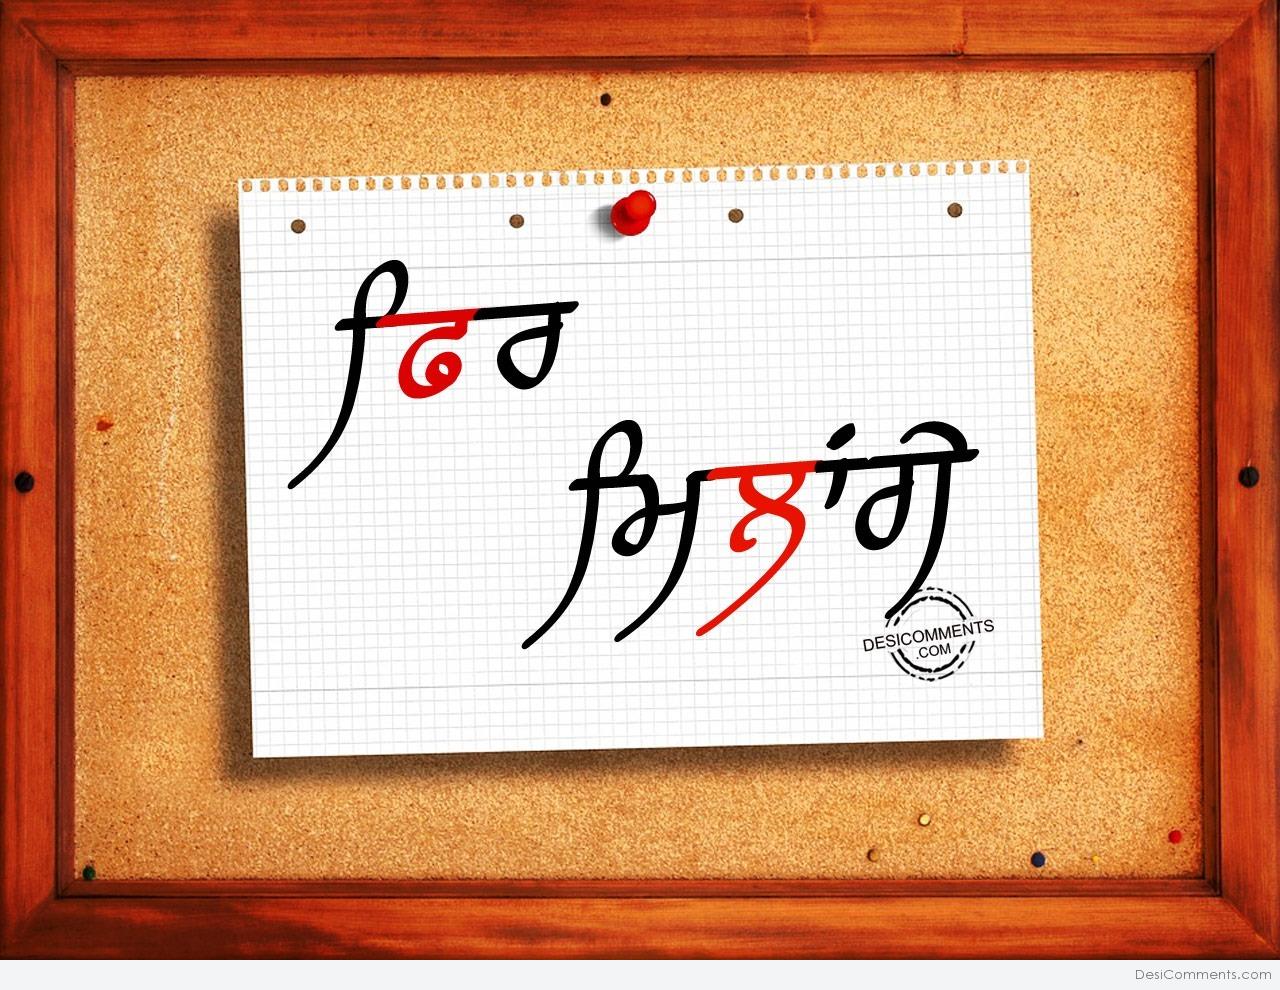 ਫਿਰ
ਮਿਲਾਂਗੇ
DESICOMMENTS
.COM
DesiComments.com